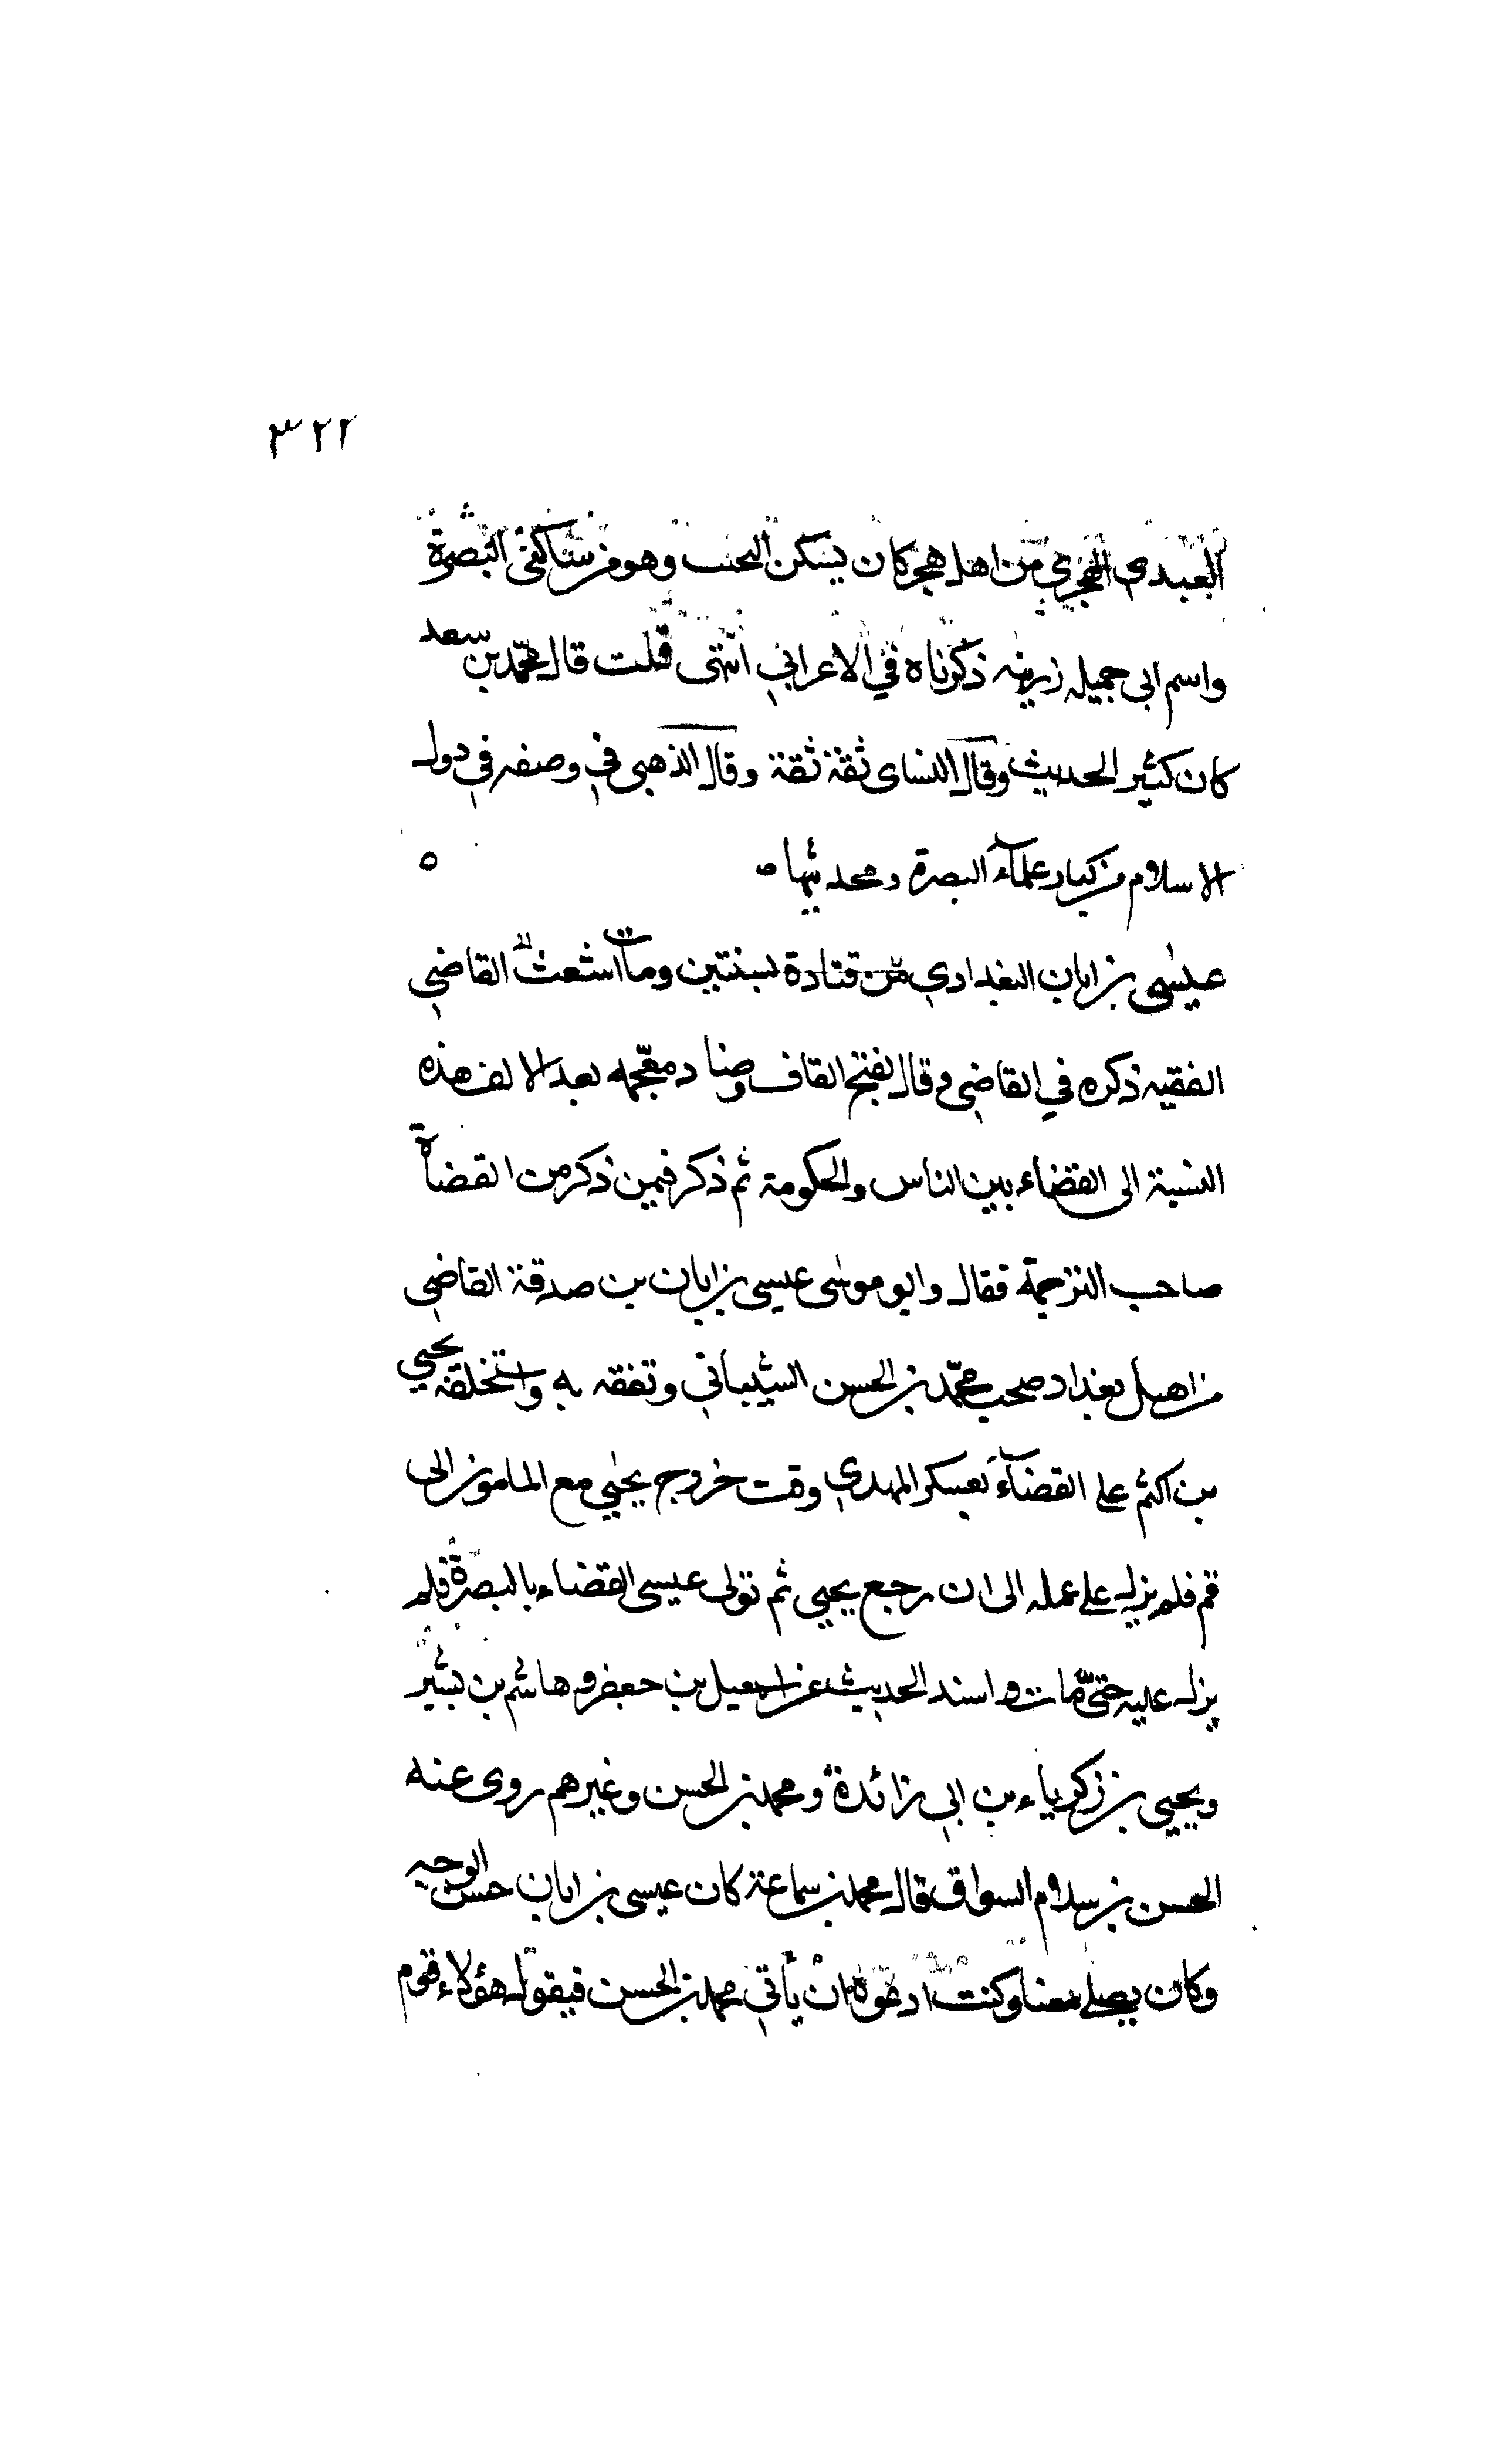 ٣٢٢
العبدي الهجري من اهل هجر كان يسكن وهو من ساكنى البصرة
واسم ابى جميله زرينه ذكرناه في الاعرابي انتهى قلت قال محمد بن سعد
كان كثير الحديث وقال النساى ثقة ثقة وقال الذهبى في وصفه في دول
الاسلام من كبار علمآء البصرة ومحدثيها ه ه
عيسى بن ابان البغدادي من قتادة بسنتين ومات اشعث القاضي
الفقيه ذكره في القاضي وقال بفتح القاف وضاد معجمه بعد الالف هذه
النسبة الى القضاء بين الناس والحكومة ثم ذكر فيمن ذكر من القضاة
صاحب الترجمة فقال وابو موسى عيسى بن ابان بن صدقة القاضي
من اهل بغداد صحب محمد بن الحسن الشيباني وتفقه به واستخلفه يحيي
بن اكثم على القضآء بعسكر المهدي وقت خروج يحيي مع المامون الى
قم فلم يزل على عمله الى ان رجع يحيى ثم تولى عيسى القضاء بالبصرة فلم
يزل عليه حتى مات واسند الحديث عن اسمعيل بن جعفر وهاشم بن بشير
ويحيي بن زكرياء بن ابي زائدة ومحمد بن الحسن وغيرهم روى عنه
الحسن بن سلام السواق قال محمد بن سماعة كان عيسى بن ابان حسن الوجه
وكان يصلي معنا وكنت ادعوه ان يأتي محمد بن الحسن فيقول هؤلاء قوم